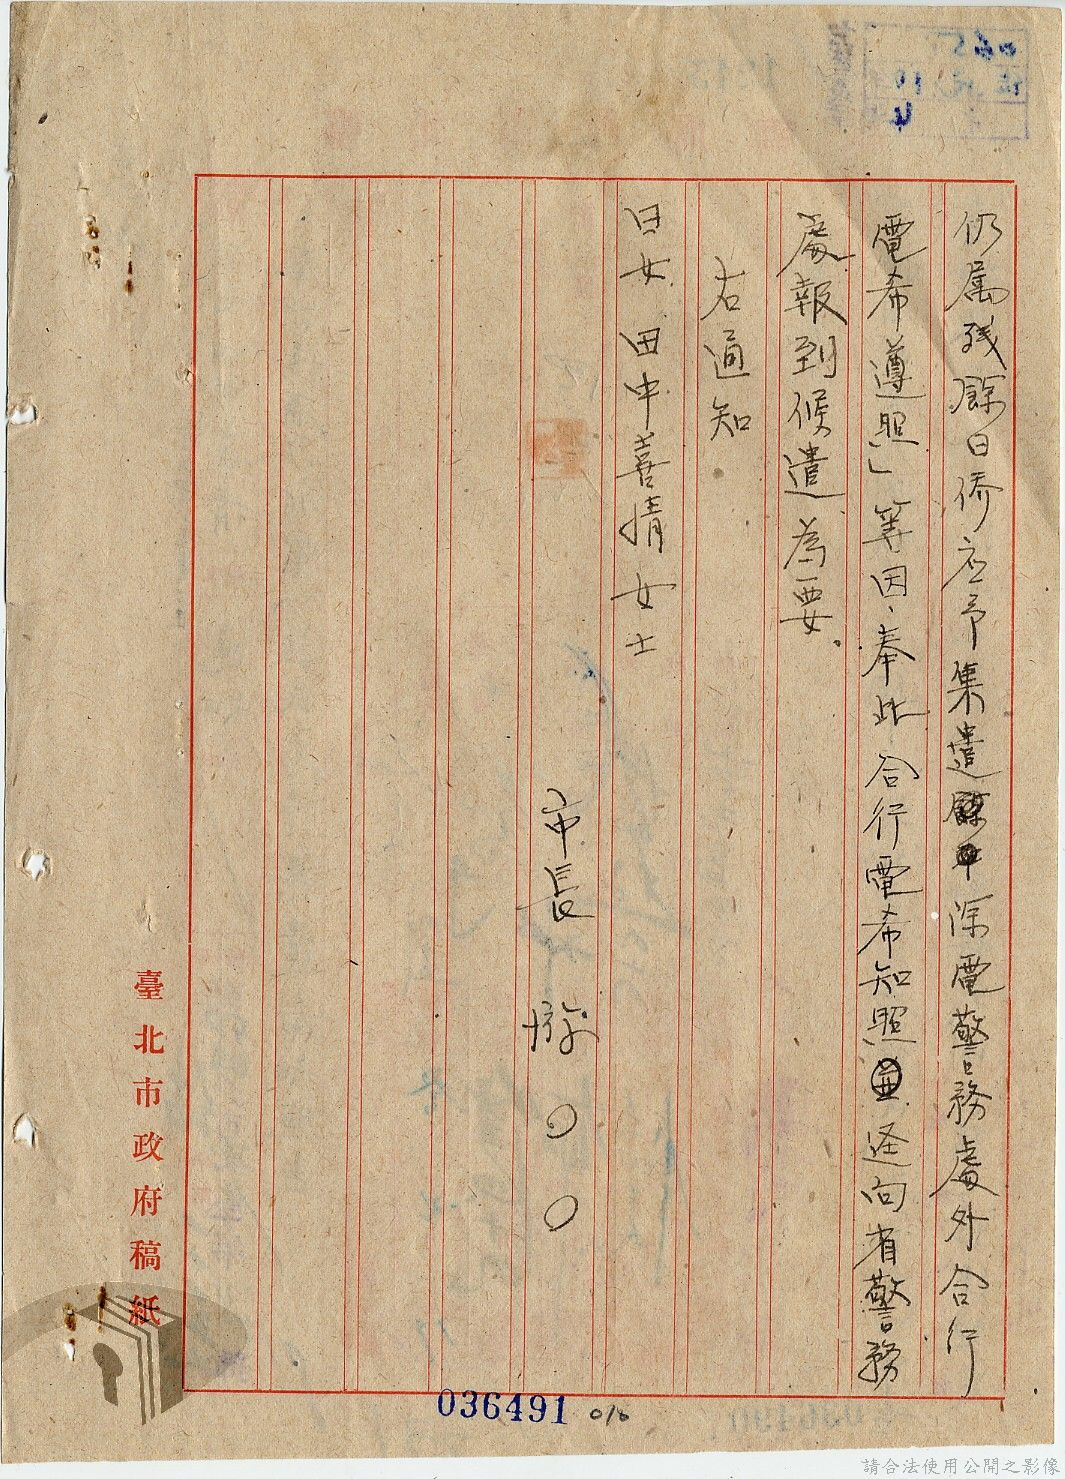 仍属残餘日侨应予集遣除電警務處外合行
電希遵照」等因、奉此合行電希知照並逕向省警務
處報到候遣為要。
右通知
日女田中喜情女士
市長 游 〇 〇
臺北市政府稿紙
036491
016
請合法使用公開之影像